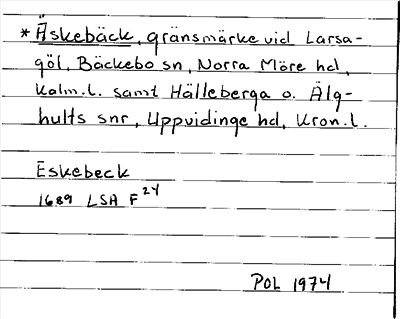 *Äskebäck, gränsmärke vid Larsa-
göl, Bäckebo sn, Norra Möre hd,
Kalm.l. samt Hälleberga o. Älg-
hults snr, Uppvidinge hd, Kron.l.
Eskebeck
1689 LSA F 24
POL 1974